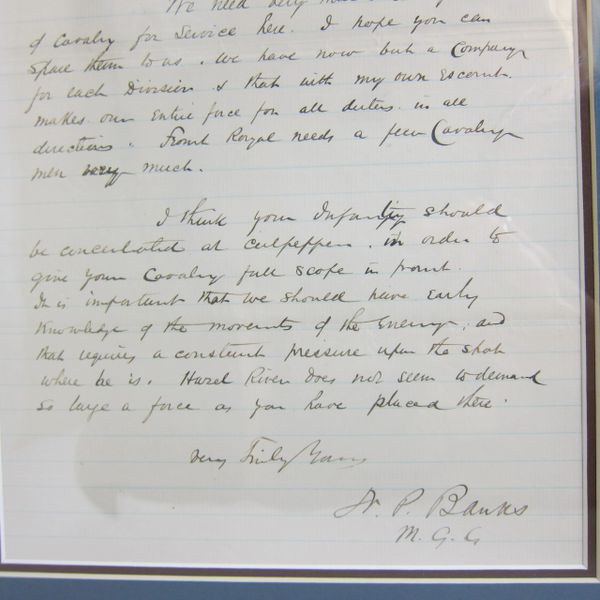 We need very
of Cavalry for Service here. I hope you can
spare them to us. We have now but a Company
for each Division & that with my own Escort
makes our Entire force for all duties in all
directions. Front Royal needs a few Cavalry
men very much.
I think your Infantry should
be concentrated at Culpepper, in order to
give your Cavalry full scope in front.
It is important that we should have Early
Knowledge of the movements of the Enemy, and
that requires a constant pressure upon the spot
where he is. Hazel River does not seem to demand
so large a force as you have placed there.
Very Truly Yours
N. P. Banks
M. G. C